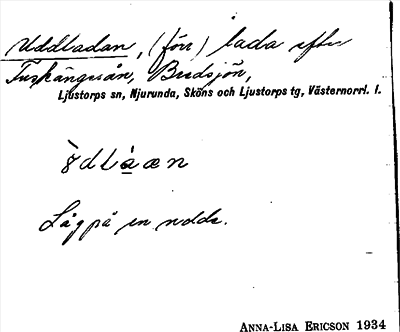 Uddladan, (förr) lada efter
Tuskängsån, Bredsjön,
Ljustorps sn, Njurunda, Sköns och Ljustorps tg, Västernorrl. l.
Låg på en udde.
ANNA-LISA ERICSON 1934